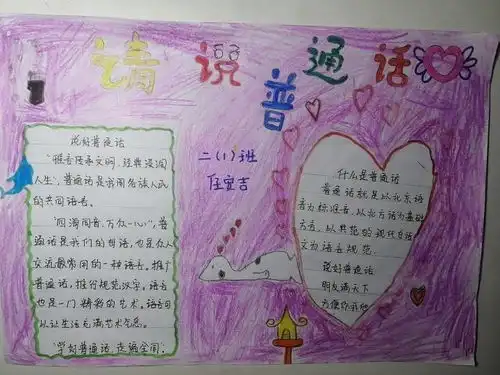 请说普通话
二(1)班
任宜吉
说好普通话
"雅言传承文明,经典浸润
人生",普通话是我国各族人民
的共同语言。
"四海同音,万众一心",普
通话是我们的母语,也是众人
交流最常用的一种语言。推广
普通话,推行规范汉字。语言
也是一门精彩的艺术。语言可
以让生活充满艺术气息。
"学好普通话,走遍全国,
什么是普通话
普通话就是以北京语
音为标准音,以北方话为基础
方言,以典范的现代白话
文为语法规范
说好普通话
朋友满天下
方便你我他